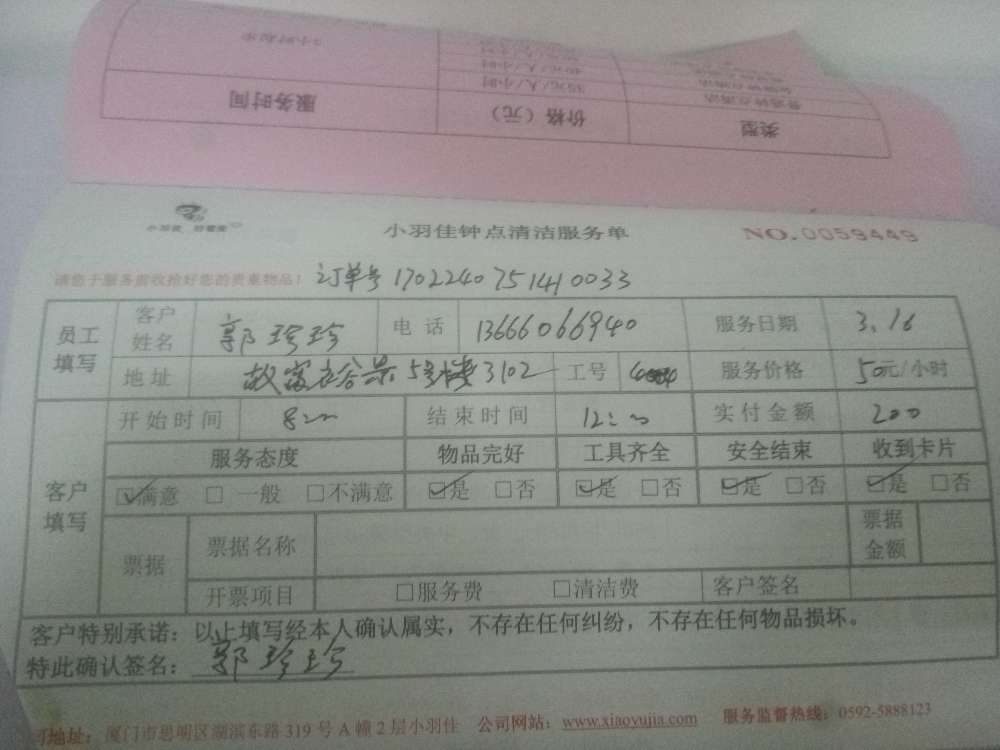 服务时间 价格（元） 类型
35元/人/小时 普通钟点清洁
小羽佳 好管家
小羽佳钟点清洁服务单 NO.0059449
请您于服务前收拾好您的贵重物品！ 订单号 170224075141 0033
员工填写 客户姓名 郭珍珍 电话 13666066940 服务日期 3.16
地址 5号楼3102 工号 服务价格 50元/小时
客户填写 开始时间 8:00 结束时间 12:00 实付金额 200
服务态度 物品完好 工具齐全 安全结束 收到卡片
☑满意 □一般 □不满意 ☑是 □否 ☑是 □否 ☑是 □否 ☑是 □否
票据 票据名称 票据金额
开票项目 □服务费 □清洁费 客户签名
客户特别承诺：以上填写经本人确认属实，不存在任何纠纷，不存在任何物品损坏。
特此确认签名：郭珍珍
司地址：厦门市思明区湖滨东路319号A幢2层小羽佳 公司网站：www.xiaoyujia.com 服务监督热线：0592-5888123